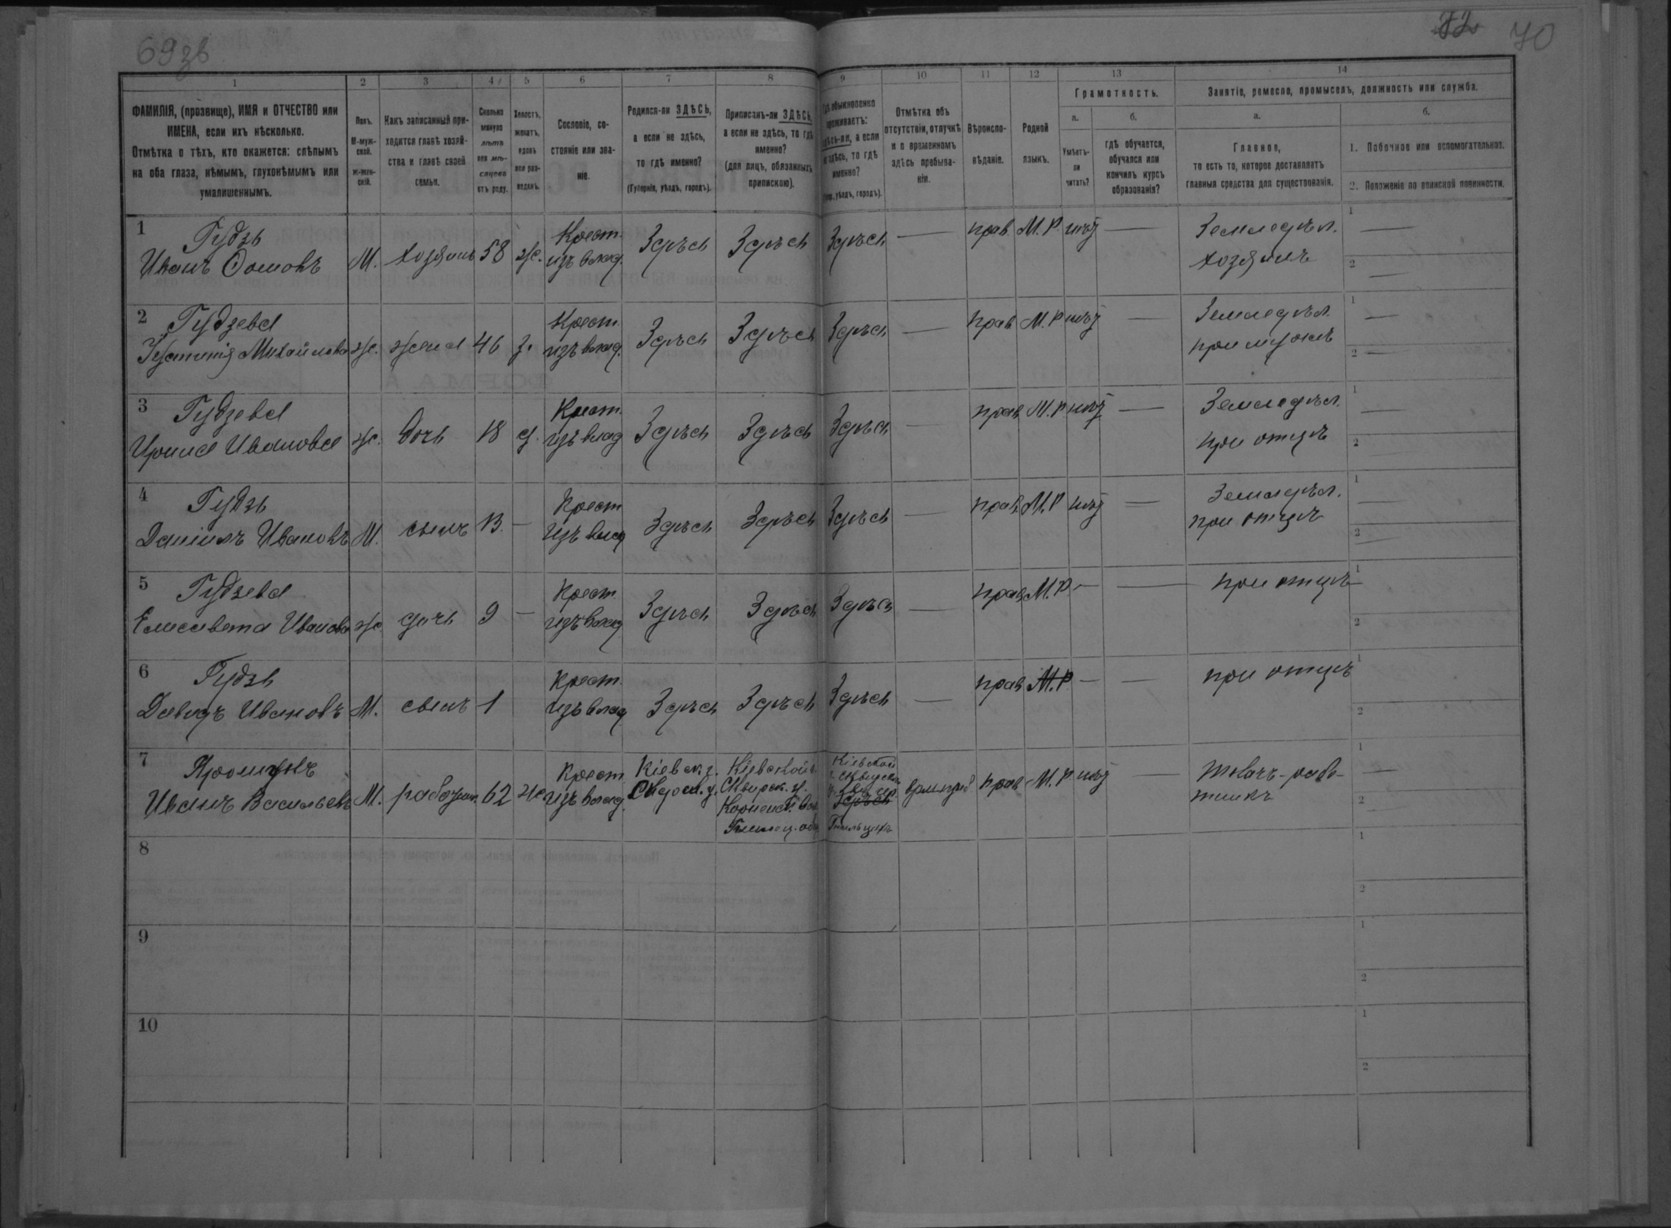 69зв
72 70
1 2 3 4 5 6 7 8 9 10 11 12 13 14
ФАМИЛІЯ, (прозвище), ИМЯ и ОТЧЕСТВО или
ИМЕНА, если ихъ нѣсколько.
Отмѣтка о тѣхъ, кто окажется: слѣпымъ
на оба глаза, нѣмымъ, глухонѣмымъ или
умалишеннымъ.
Полъ.
М-муж-
ской.
Ж-жен-
скій.
Какъ записанный при-
ходится главѣ хозяй-
ства и главѣ своей
семьи.
Сколько
минуло
лѣтъ
или мѣ-
сяцевъ
отъ роду.
Холостъ,
женатъ,
вдовъ
или раз-
веденъ.
Сословіе, со-
стояніе или зва-
ніе.
Родился-ли ЗДѢСЬ,
а если не здѣсь,
то гдѣ именно?
(Губернія, уѣздъ, городъ).
Приписанъ-ли ЗДѢСЬ,
а если не здѣсь, то гдѣ
именно?
(для лицъ, обязанныхъ
припискою).
Гдѣ обыкновенно
проживаетъ:
здѣсь-ли, а если
не здѣсь, то гдѣ
именно?
(Губ., уѣздъ, городъ).
Отмѣтка объ
отсутствіи, отлучкѣ
и о временномъ
здѣсь пребыва-
ніи.
Вѣроиспо-
вѣданіе.
Родной
языкъ.
Грамотность.
а.
Умѣетъ-
ли
читать?
б.
гдѣ обучается,
обучался или
кончилъ курсъ
образованія?
Занятіе, ремесло, промыселъ, должность или служба.
а.
Главное,
то есть то, которое доставляетъ
главныя средства для существованія.
б.
1. Побочное или вспомогательное.
2. Положеніе по воинской повинности.
1 Гудзь Крест. Земледѣл. 1
Иванъ М. хозяинъ 58 ж. изъ влад. Здѣсь Здѣсь Здѣсь — прав М. Р — хозяинъ 2
2 Гудзева Крест. Земледѣл. 1
Михайлова ж. жена 46 з. изъ влад. Здѣсь Здѣсь Здѣсь — прав М. Р — при мужѣ 2
3 Гудзева Крест. Земледѣл. 1
Иванова ж. дочь 18 д. изъ влад Здѣсь Здѣсь Здѣсь — прав М. Р — при отцѣ 2
4 Гудзь Крест Земледѣл. 1
Даніилъ Ивановъ М. сынъ 13 — изъ влад Здѣсь Здѣсь Здѣсь — прав М. Р — при отцѣ 2
5 Гудзева Крест 1
Елисавета Иванова ж дочь 9 — изъ влад Здѣсь Здѣсь Здѣсь — прав М. Р — — при отцѣ 2
6 Гудзь Крест. 1
Давидъ Ивановъ М. сынъ 1 изъ влад Здѣсь Здѣсь Здѣсь — прав М. Р — — при отцѣ 2
7 Крест Кіевск. г. Кіевской г. Кіевской 1
Иванъ Васильевъ М. 62 изъ влад. Сквирск. у. Сквирск. у. Здѣсь прав М. Р — 2
8 1
2
9 1
2
10 1
2